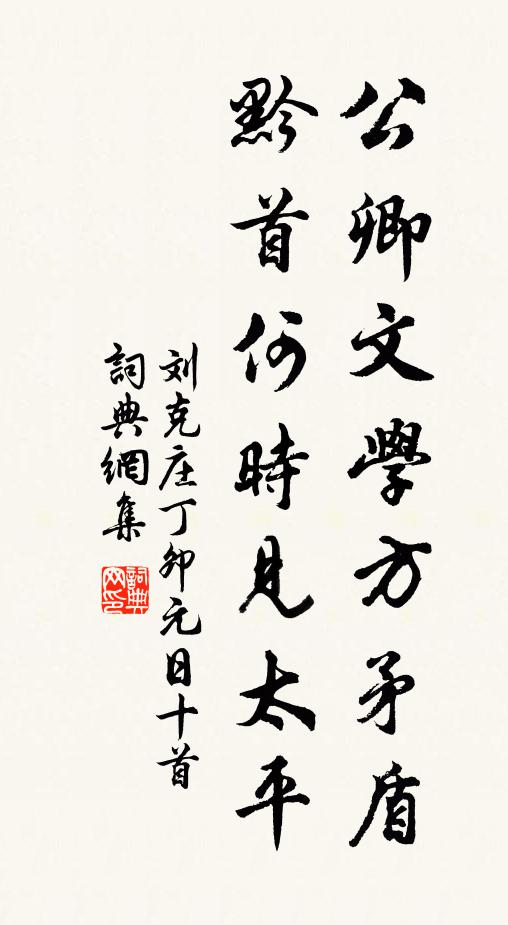 公卿文學方矛盾
黔首何時見太平
刘克庄丁卯元日十首
詞典網集
詞典网印